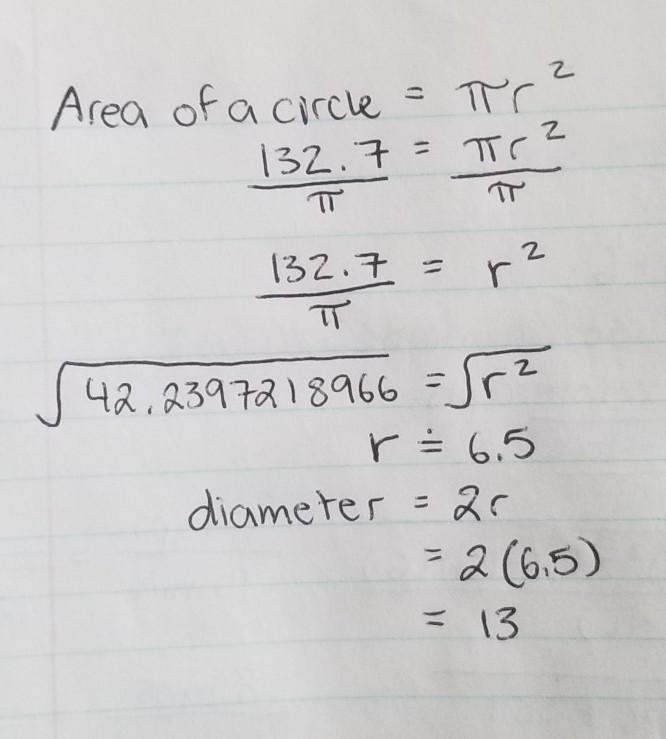 Area of a circle = πr²
132.7/π = πr²/π
132.7/π = r²
√42.2397218966 = √r²
r ≐ 6.5
diameter = 2r
= 2(6.5)
= 13